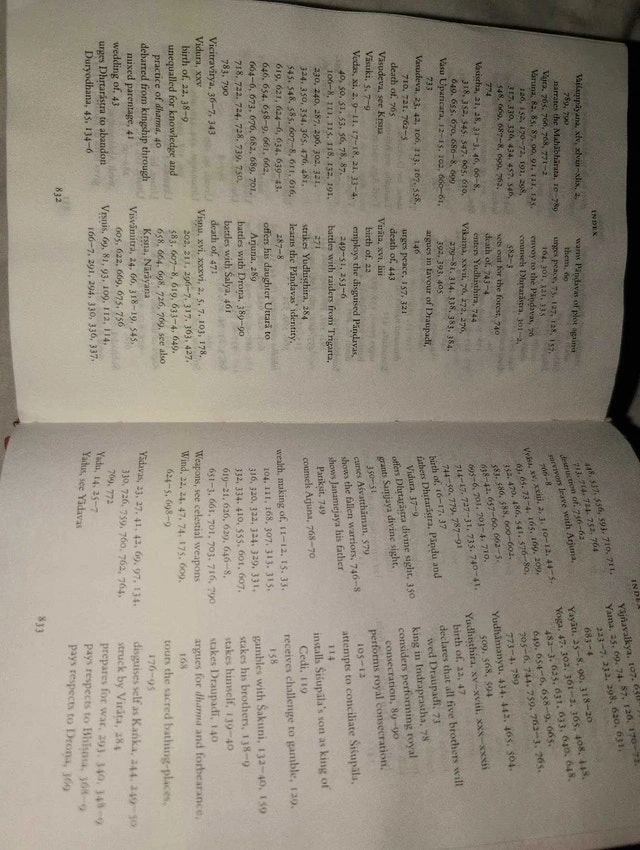 INDEX
Vaiśaṃpāyana, xiv, xlviii–xlix, 2,
789, 790
narrates the Mahābhārata, 10–789
Vajra, 765, 766, 768, 771–2
Varuṇa, 82, 85, 87, 90, 91, 111, 125,
126, 150, 170–72, 191, 298,
317, 330, 336, 434, 457, 546,
548, 669, 687–8, 699, 762,
774
Vasiṣṭha, 21, 28, 31–3, 46, 66–8,
318, 352, 545, 547, 605, 610,
649, 655, 670, 686–8, 699
Vasu Uparicara, 12–15, 102, 660–61,
733
Vasudeva, 23, 42, 106, 113, 167, 538,
710, 721, 762–3
death of, 765
Vāsudeva, see Kṛṣṇa
Vāsuki, 5, 7–9
Vedas, xi, 2, 9–11, 17–18, 21, 33–4,
40, 50, 51, 53, 56, 78, 87,
106–8, 111, 115, 118, 132, 191,
230, 240, 287, 296, 302, 321,
324, 350, 354, 365, 476, 481,
545, 548, 585, 607–8, 611, 616,
619, 621, 624–6, 634, 639–43,
646, 654, 658–9, 661, 662,
664–6, 673, 676, 682, 689, 701,
718, 722, 724, 728, 739, 750,
783, 790
Vicitravīrya, 36–7, 343
Vidura, xxv
birth of, 22, 38–9
unequalled for knowledge and
practice of dharma, 40
debarred from kingship through
mixed parentage, 41
wedding of, 43
urges Dhṛtarāṣṭra to abandon
Duryodhana, 45, 134–6
warns Pāṇḍavas of plot against
them, 60
urges peace, 75, 127, 128, 157,
164, 301, 321, 331
envoy to the Pāṇḍavas, 76
counsels Dhṛtarāṣṭra, 301–2,
582–3
sets out for the forest, 740
death of, 743–4
enters Yudhiṣṭhira, 744
Vikarṇa, xxvii, 76, 272, 276,
279–81, 314, 338, 383, 384,
392, 393, 405
argues in favour of Draupadī,
146
urges peace, 157, 321
death of, 443
Virāṭa, xvi, liii
birth of, 22
employs the disguised Pāṇḍavas,
249–51, 253–6
battles with raiders from Trigarta,
271
strikes Yudhiṣṭhira, 284
learns the Pāṇḍavas' identity,
287–8
offers his daughter Uttarā to
Arjuna, 289
battles with Droṇa, 389–90
battles with Śalya, 461
death of, 471
Viṣṇu, xvi, xxxvi, 2, 5, 7, 103, 178,
202, 211, 296–7, 317, 363, 427,
583, 607–8, 619, 633–4, 649,
658, 664, 698, 726, 769, see also
Kṛṣṇa, Nārāyaṇa
Viśvāmitra, 24, 66, 318–19, 545,
605, 622, 669, 672, 756
Vṛṣṇis, 69, 81, 93, 109, 112, 114,
166–7, 291, 294, 330, 336, 337,
832
INDEX
348, 537, 436, 593, 710, 711,
713, 714, 721, 752, 764
destruction of, 756–62
survivors leave with Arjuna,
766–8
Vyāsa, xv, xviii, 2, 3, 10–12, 44–5,
65, 72–4, 165, 169, 209,
352, 470, 472, 541, 576–80,
586, 588, 600–602,
638–42, 657–60, 662–5,
691–6, 701, 703–4, 710,
714–17, 727–31, 735, 740–41,
743–50, 779, 781–91
birth of, 16–17, 37
fathers Dhṛtarāṣṭra, Pāṇḍu and
Vidura, 37–9
offers Dhṛtarāṣṭra divine sight, 350
grants Saṃjaya divine sight,
350–51
curses Aśvatthāman, 579
shows the fallen warriors, 746–8
shows Janamejaya his father
Parikṣit, 749
counsels Arjuna, 768–70
wealth, making of, 11–12, 15, 33,
104, 111, 168, 307, 313, 315,
316, 320, 322, 324, 329, 331,
332, 334, 410, 555, 601, 607,
619–21, 626, 629, 646–8,
651–3, 661, 701, 703, 716, 790
Weapons, see celestial weapons
Wind, 22, 24, 47, 74, 175, 609,
624–5, 698–9
Yādavas, 23, 27, 41, 42, 69, 97, 134,
330, 726, 759, 760, 762, 764,
769, 772
Yadu, 24, 25–7
Yadus, see Yādavas
Yājñavalkya, 107,
682–4
Yama, 25, 69, 74, 87, 126, 170–72,
223–7, 232, 298, 620, 631,
Yayāti, 23–8, 90, 318–20
Yoga, 47, 302, 361–2, 365, 408, 448,
582–3, 625, 631, 633, 640, 648,
649, 654–6, 658–9, 665,
705–6, 744, 759, 762–3, 765,
773–4, 789
Yudhāmanyu, 434, 442, 465, 504,
509, 568, 594
Yudhiṣṭhira, xv–xviii, xxx–xxxii
birth of, 22, 47
declares that all five brothers will
wed Draupadī, 73
king in Indraprastha, 78
considers performing royal
consecration, 89–90
performs royal consecration,
105–12
attempt to conciliate Śiśupāla,
114
installs Śiśupāla's son as king of
Cedi, 119
receives challenge to gamble, 129,
158
gambles with Śakuni, 132–40, 159
stakes his brothers, 138–9
stakes himself, 139–40
stakes Draupadī, 140
argues for dharma and forbearance,
168
tours the sacred bathing-places,
176–95
disguises self as Kaṅka, 244, 249–50
struck by Virāṭa, 284
prepares for war, 293, 340, 348–9
pays respects to Bhīṣma, 368–9
pays respects to Droṇa, 369
833